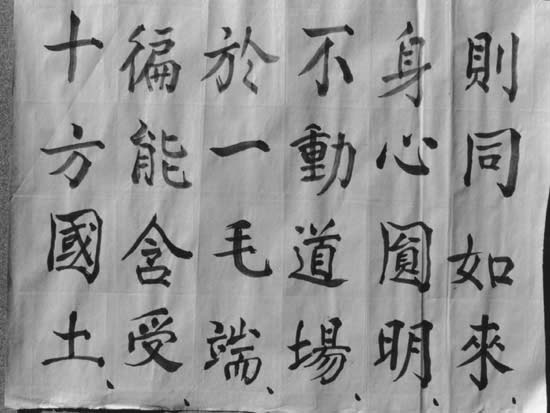 則同如來、
身心圓明、
不動道場、
於一毛端、
徧能含受、
十方國土、